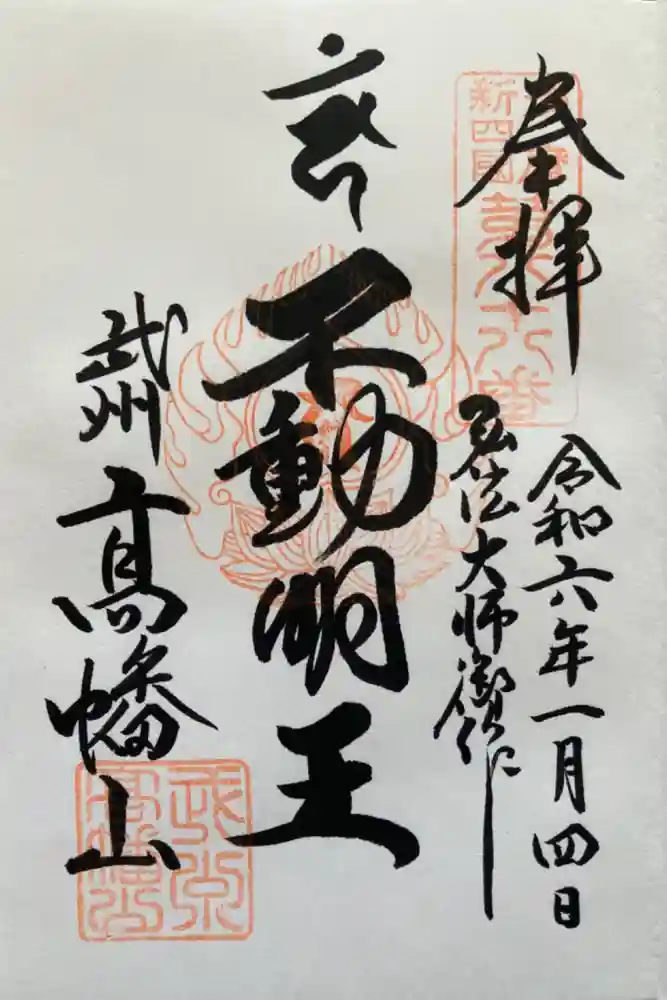 奉拝
令和六年一月四日
新四國
弘法大師
不動明王
武州
高幡山